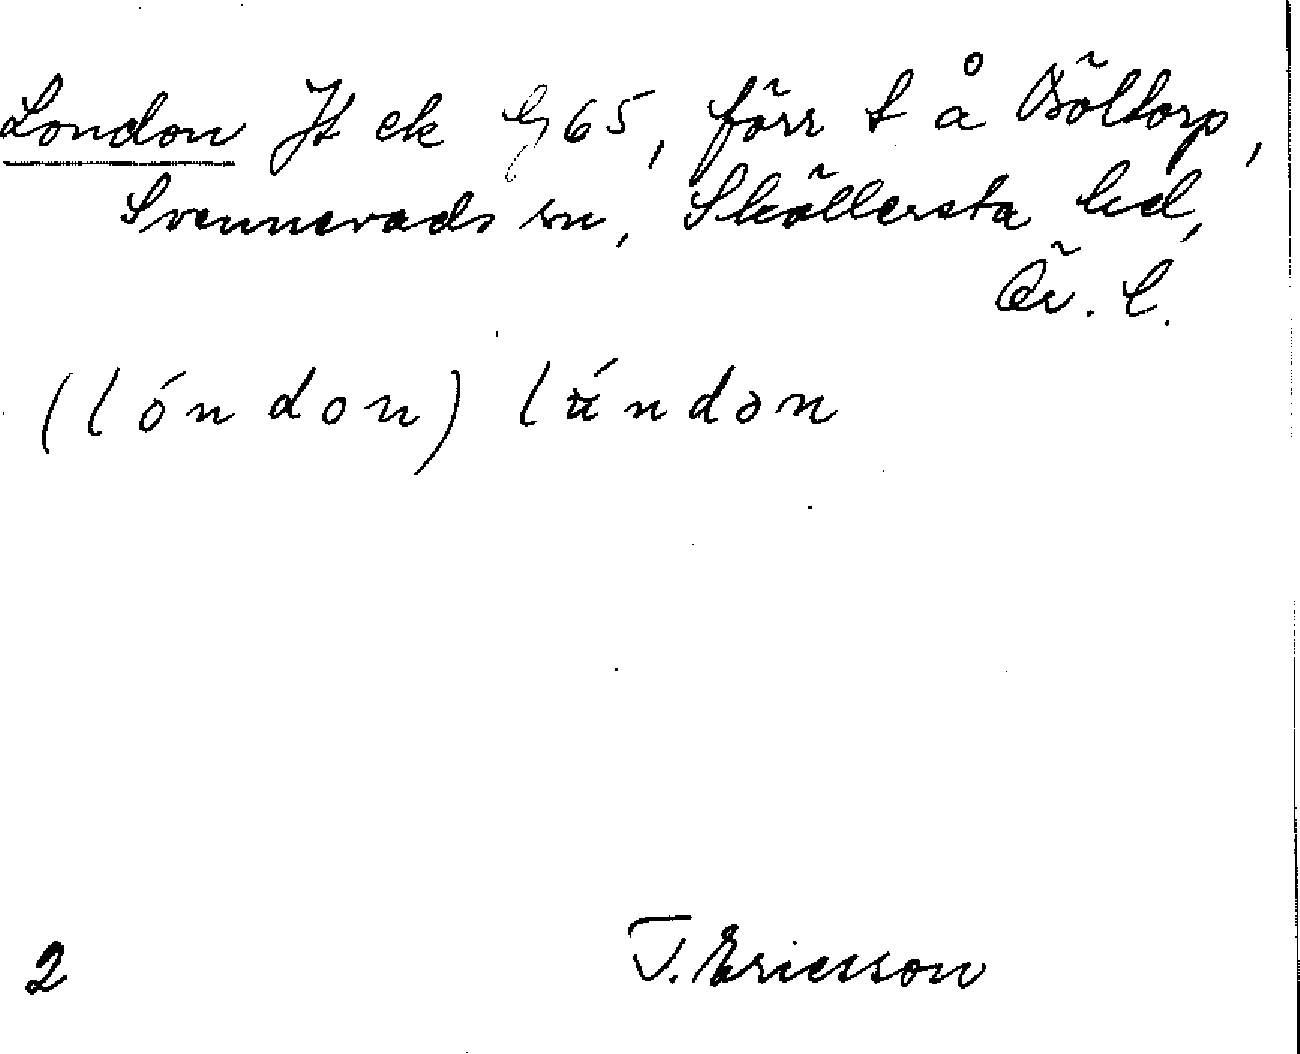 London Jt ek G65, förr t å Böltorp,
Svennevads sn, Sköllersta hd,
Ör. l.
(lóndon) lúndon
2 T. Ericsson